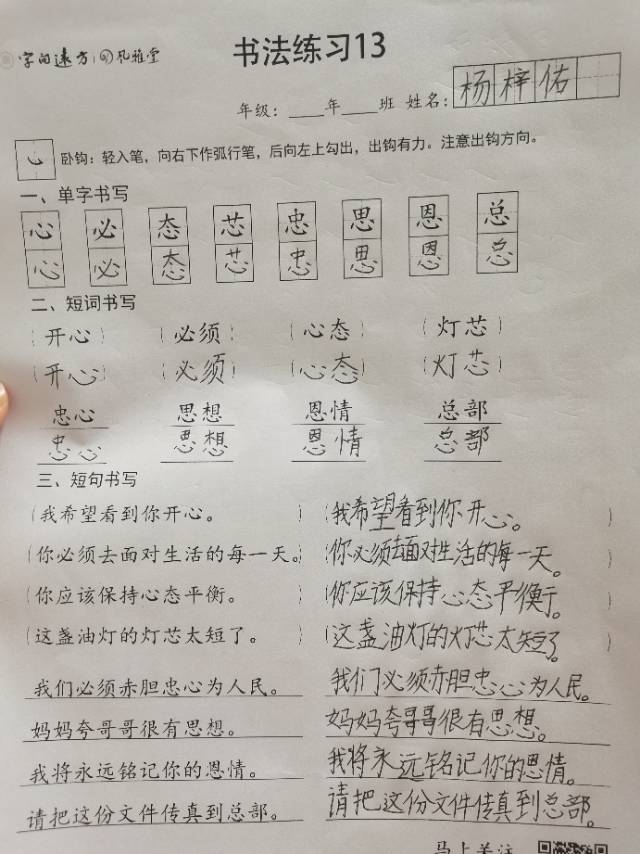 字的远方 风雅堂
书法练习13
年级：____年____班 姓名：杨梓佑
心 卧钩：轻入笔，向右下作弧行笔，后向左上勾出，出钩有力。注意出钩方向。
一、单字书写
心 必 态 芯 忠 思 恩 总
心 必 态 芯 忠 思 恩 总
二、短词书写
（开心） （必须） （心态） （灯芯）
（开心） （必须） （心态） （灯芯）
忠心 思想 恩情 总部
忠心 思想 恩情 总部
三、短句书写
（我希望看到你开心。 ） （我希望看到你开心。 ）
（你必须去面对生活的每一天。） （你必须去面对生活的每一天。 ）
（你应该保持心态平衡。 ） （你应该保持心态平衡。 ）
（这盏油灯的灯芯太短了。 ） （这盏油灯的灯芯太短了。 ）
我们必须赤胆忠心为人民。 我们必须赤胆忠心为人民。
妈妈夸哥哥很有思想。 妈妈夸哥哥很有思想。
我将永远铭记你的恩情。 我将永远铭记你的恩情。
请把这份文件传真到总部。 请把这份文件传真到总部。
马上关注